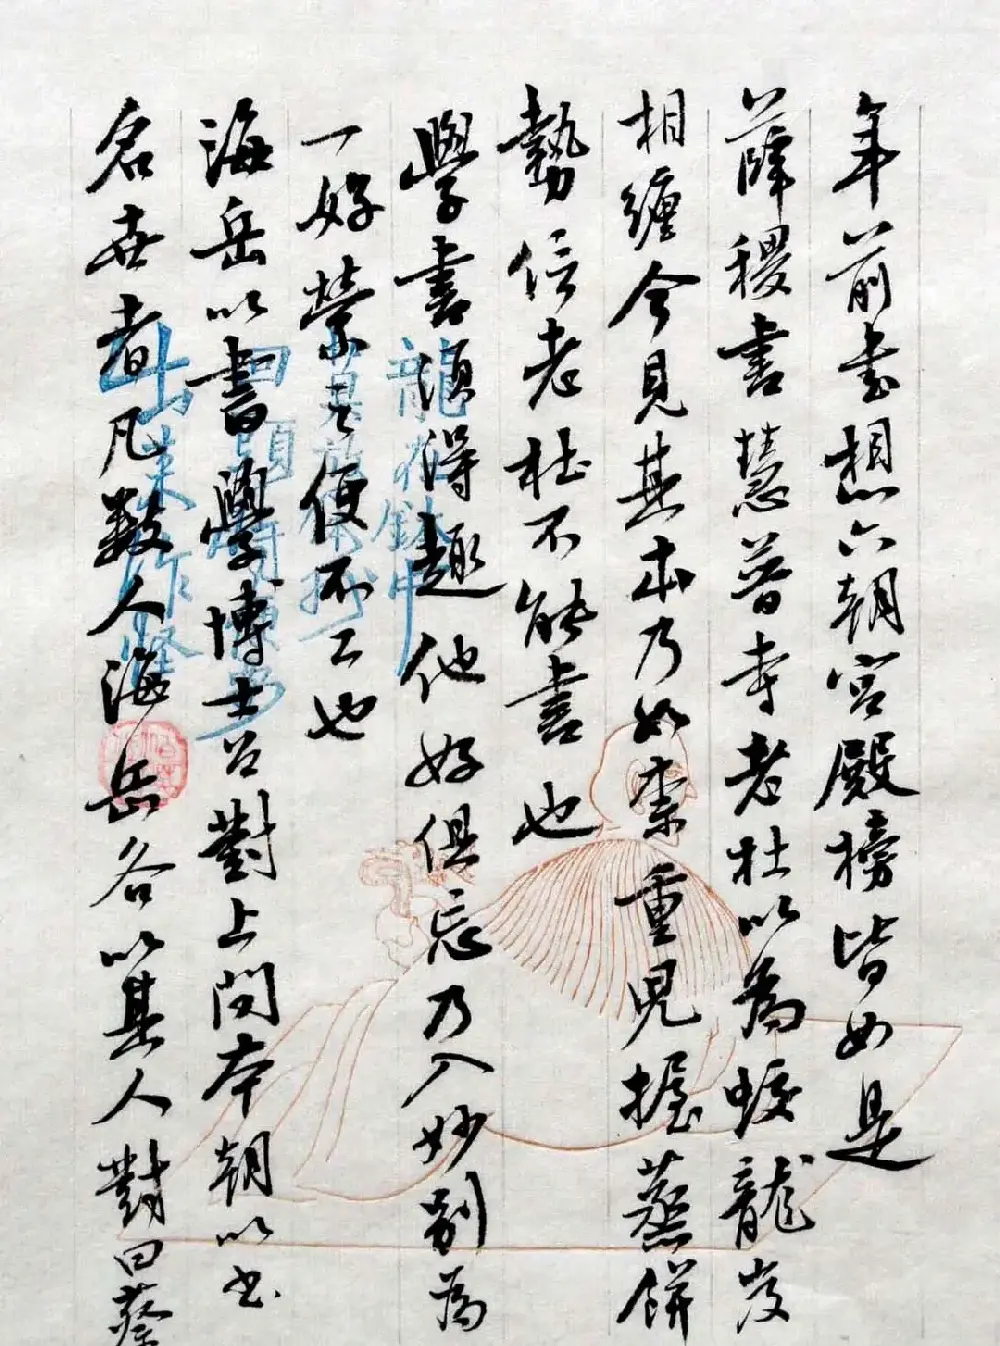 年前書想六朝宮殿榜皆如是
薛稷書慧普寺老杜以為蛟龍岌
相纏今見其本乃如柰重兒握蒸餅
勢信老杜不能書也
學書須得趣他好俱忘乃入妙別為
一好縈之便不工也
海岳以書學博士召對上問本朝以書
名世者凡數人海岳各以其人對曰蔡